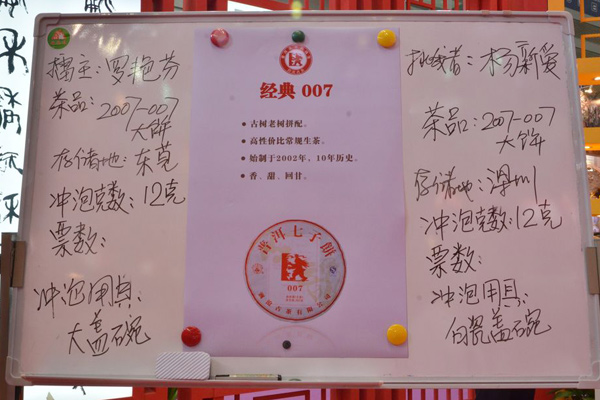 擂主：罗艳芬
茶品：2007-007
大饼
存储地：东莞
冲泡克数：12克
票数：
冲泡用具：
大盖碗
经典 007
古树老树拼配。
高性价比常规生茶。
始制于2002年，10年历史。
香、甜、回甘。
普洱七子饼
007
挑战者：杨新爱
茶品：2007-007
大饼
存储地：
冲泡克数：12克
票数：
冲泡用具：
白瓷盖碗